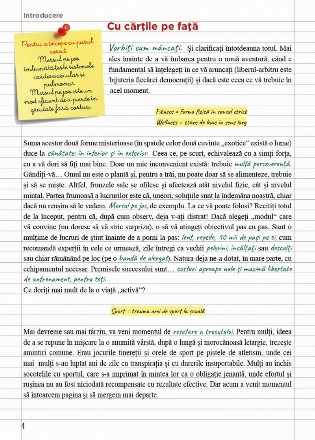 Introducere
Cu cărțile pe față
Pentru a începe cu pasul
corect
Mersul pe jos
îmbunătățește sistemele
cardiovascular și
pulmonar.
Mersul pe jos este un
mod eficient de a pierde în
greutate fără costuri.
Vorbiți cum mâncați. Și clarificați întotdeauna totul. Mai
ales înainte de a vă îmbarca pentru o nouă aventură, când e
fundamental să înțelegeți în ce vă aruncați (liberul-arbitru este
bijuteria fiecărei democrații) și dacă este ceea ce vă trebuie în
acel moment.
Fitness = forma fizică în sensul strict
Wellness = stare de bine în sens larg
Suma acestor două forme misterioase (în spatele celor două cuvinte „exotice” există o lume)
duce la sănătate în interior și în exterior. Ceea ce, pe scurt, echivalează cu a simți forța,
cu a vă dori să fiți mai bine. Doar un mic inconvenient există: trebuie multă perseverență.
Gândiți-vă… Omul nu este o plantă și, pentru a trăi, nu poate doar să se alimenteze, trebuie
și să se miște. Altfel, frunzele sale se ofilesc și afectează atât nivelul fizic, cât și nivelul
mintal. Partea frumoasă a lucrurilor este că, uneori, soluțiile sunt la îndemâna noastră, chiar
dacă nu reușim să le vedem. Mersul pe jos, de exemplu. La ce vă poate folosi? Recitiți totul
de la început, pentru că, după cum observ, deja v-ați distrat! Dacă alegeți „modul” care
vă convine (nu doresc să vă stric surpriza), o să vă atingeți obiectivul pas cu pas. Sunt o
mulțime de lucruri de știut înainte de a porni la pas: lent, repede, 10 mii de pași pe zi, cum
recomandă experții în cele ce urmează, zile întregi ca vechii pelerini, încălțați sau desculți
sau chiar rămânând pe loc (pe o bandă de alergat). Natura deja ne-a dotat, în mare parte, cu
echipamentul necesar. Premisele succesului sunt… costuri aproape nule și maximă libertate
de antrenament, pentru toți.
Ce doriți mai mult de la o viață „activă”?
Sport = trauma orei de sport la școală
Mai devreme sau mai târziu, va veni momentul de resetare a trecutului. Pentru mulți, ideea
de a se repune în mișcare la o anumită vârstă, după o lungă și morocănoasă letargie, trezește
amintiri comune. Erau jocurile tinereții și orele de sport pe pistele de atletism, unde cei
mai mulți s-au luptat ani de zile cu transpirația și cu durerile insuportabile. Mulți au închis
socotelile cu sportul, care s-a imprimat în mintea lor ca o obligație jenantă, unde efortul și
rușinea nu au fost niciodată recompensate cu rezultate efective. Dar acum a venit momentul
să întoarcem pagina și să mergem mai departe.
4